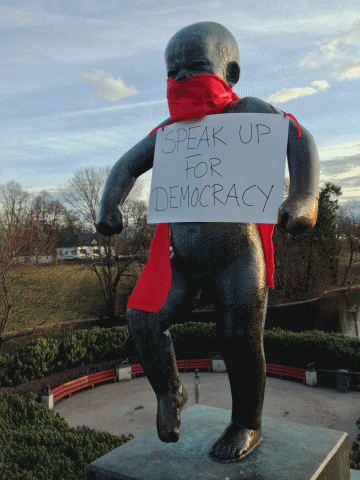 SPEAK UP
FOR
DEMOCRACY